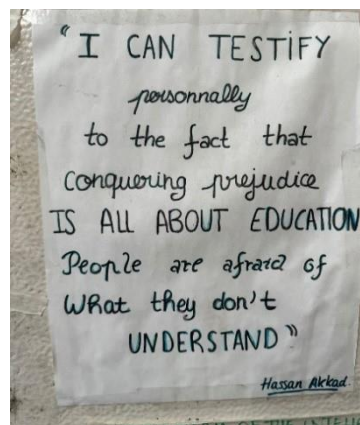 "I CAN TESTiFY
personnally
to the fact that
Conquering prejudice
IS ALL ABOUT EDUCATION
People are afraid of
What they don't
UNDERSTAND"
Hassan Akkad
OF THE INTELL